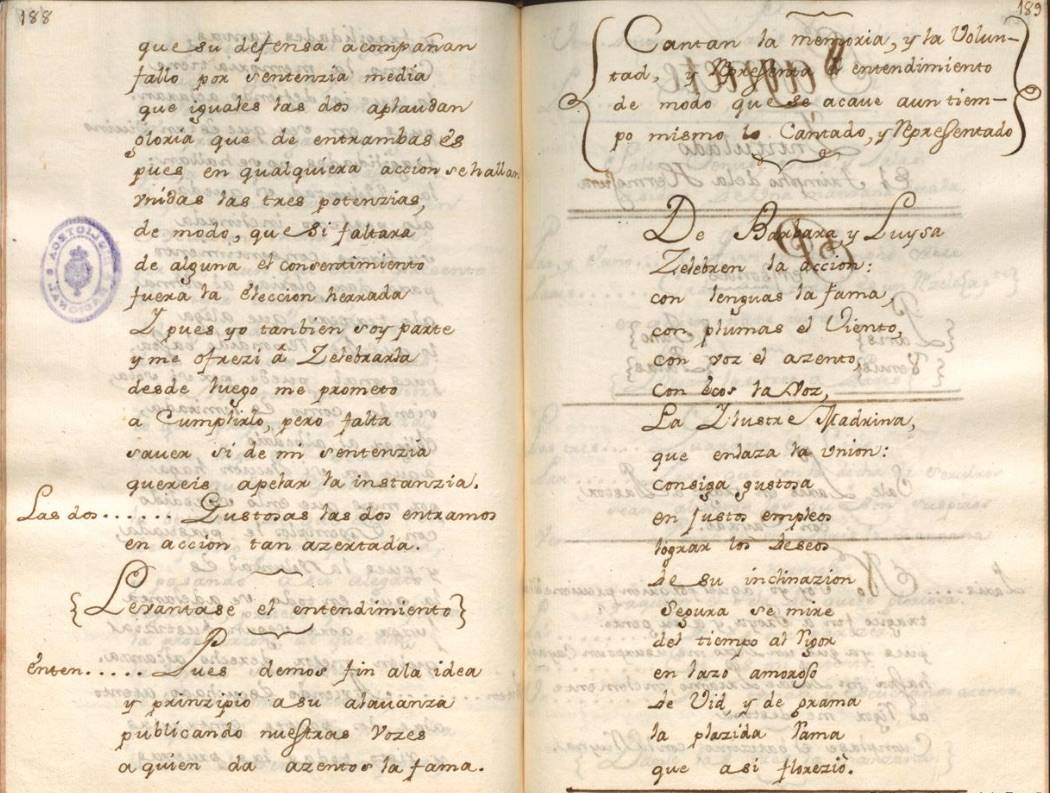 188
que su defensa acompañan
fallo por sentenzia media
que iguales las dos aplaudan
gloria que de entrambas es
pues en qualquiera accion se hallan
vnidas las tres potenzias,
de modo, que si faltara
de alguna el consentimiento
fuera la eleccion herrada
Y pues yo tanbien soy parte
y me ofrezi á Zelebrarla
desde luego me prometo
a Cumplirlo, pero falta
sauer si de mi sentenzia
quereis apelar la instanzia.
Las dos...... Gustosas las dos entramos
en accion tan azertada.
{Levantase el entendimiento}
énten..... Pues demos fin a la idea
y prinzipio a su alauanza
publicando nuestras Vozes
a quien da azentos la fama.
189
Cantan la memoria, y la Volun-
tad, y Representa el entendimiento
de modo que se acaue a un tiem-
po mismo lo Cantado, y Representado
De Barbara y Luysa
Zelebren la accion:
con lenguas la fama,
con plumas el Viento,
con voz el azento,
con écos la Voz,
La Ylustre Madrina,
que enlaza la vnion:
consiga gustosa
en justos empleos
lograr los deseos
de su inclinazion
Segura se mire
del tiempo al Rigor
en lazo amoroso
de Vid, y de grama
la plazida Rama
que asi florezió.